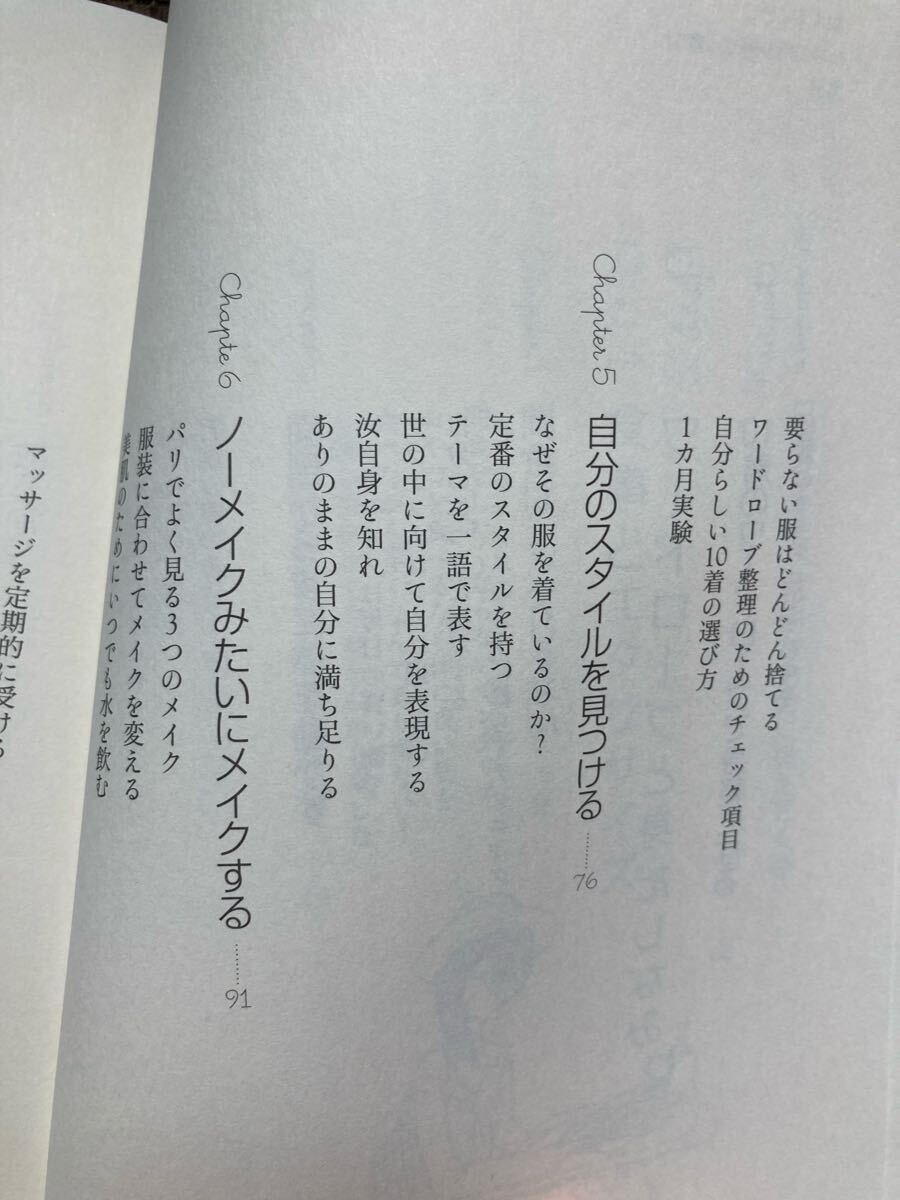 要らない服はどんどん捨てる
ワードローブ整理のためのチェック項目
自分らしい10着の選び方
1カ月実験
Chapter 5 自分のスタイルを見つける ……… 76
なぜその服を着ているのか?
定番のスタイルを持つ
テーマを一語で表す
世の中に向けて自分を表現する
汝自身を知れ
ありのままの自分に満ち足りる
Chapte 6 ノーメイクみたいにメイクする ……… 91
パリでよく見る3つのメイク
服装に合わせてメイクを変える
美肌のためにいつでも水を飲む
マッサージを定期的に受ける